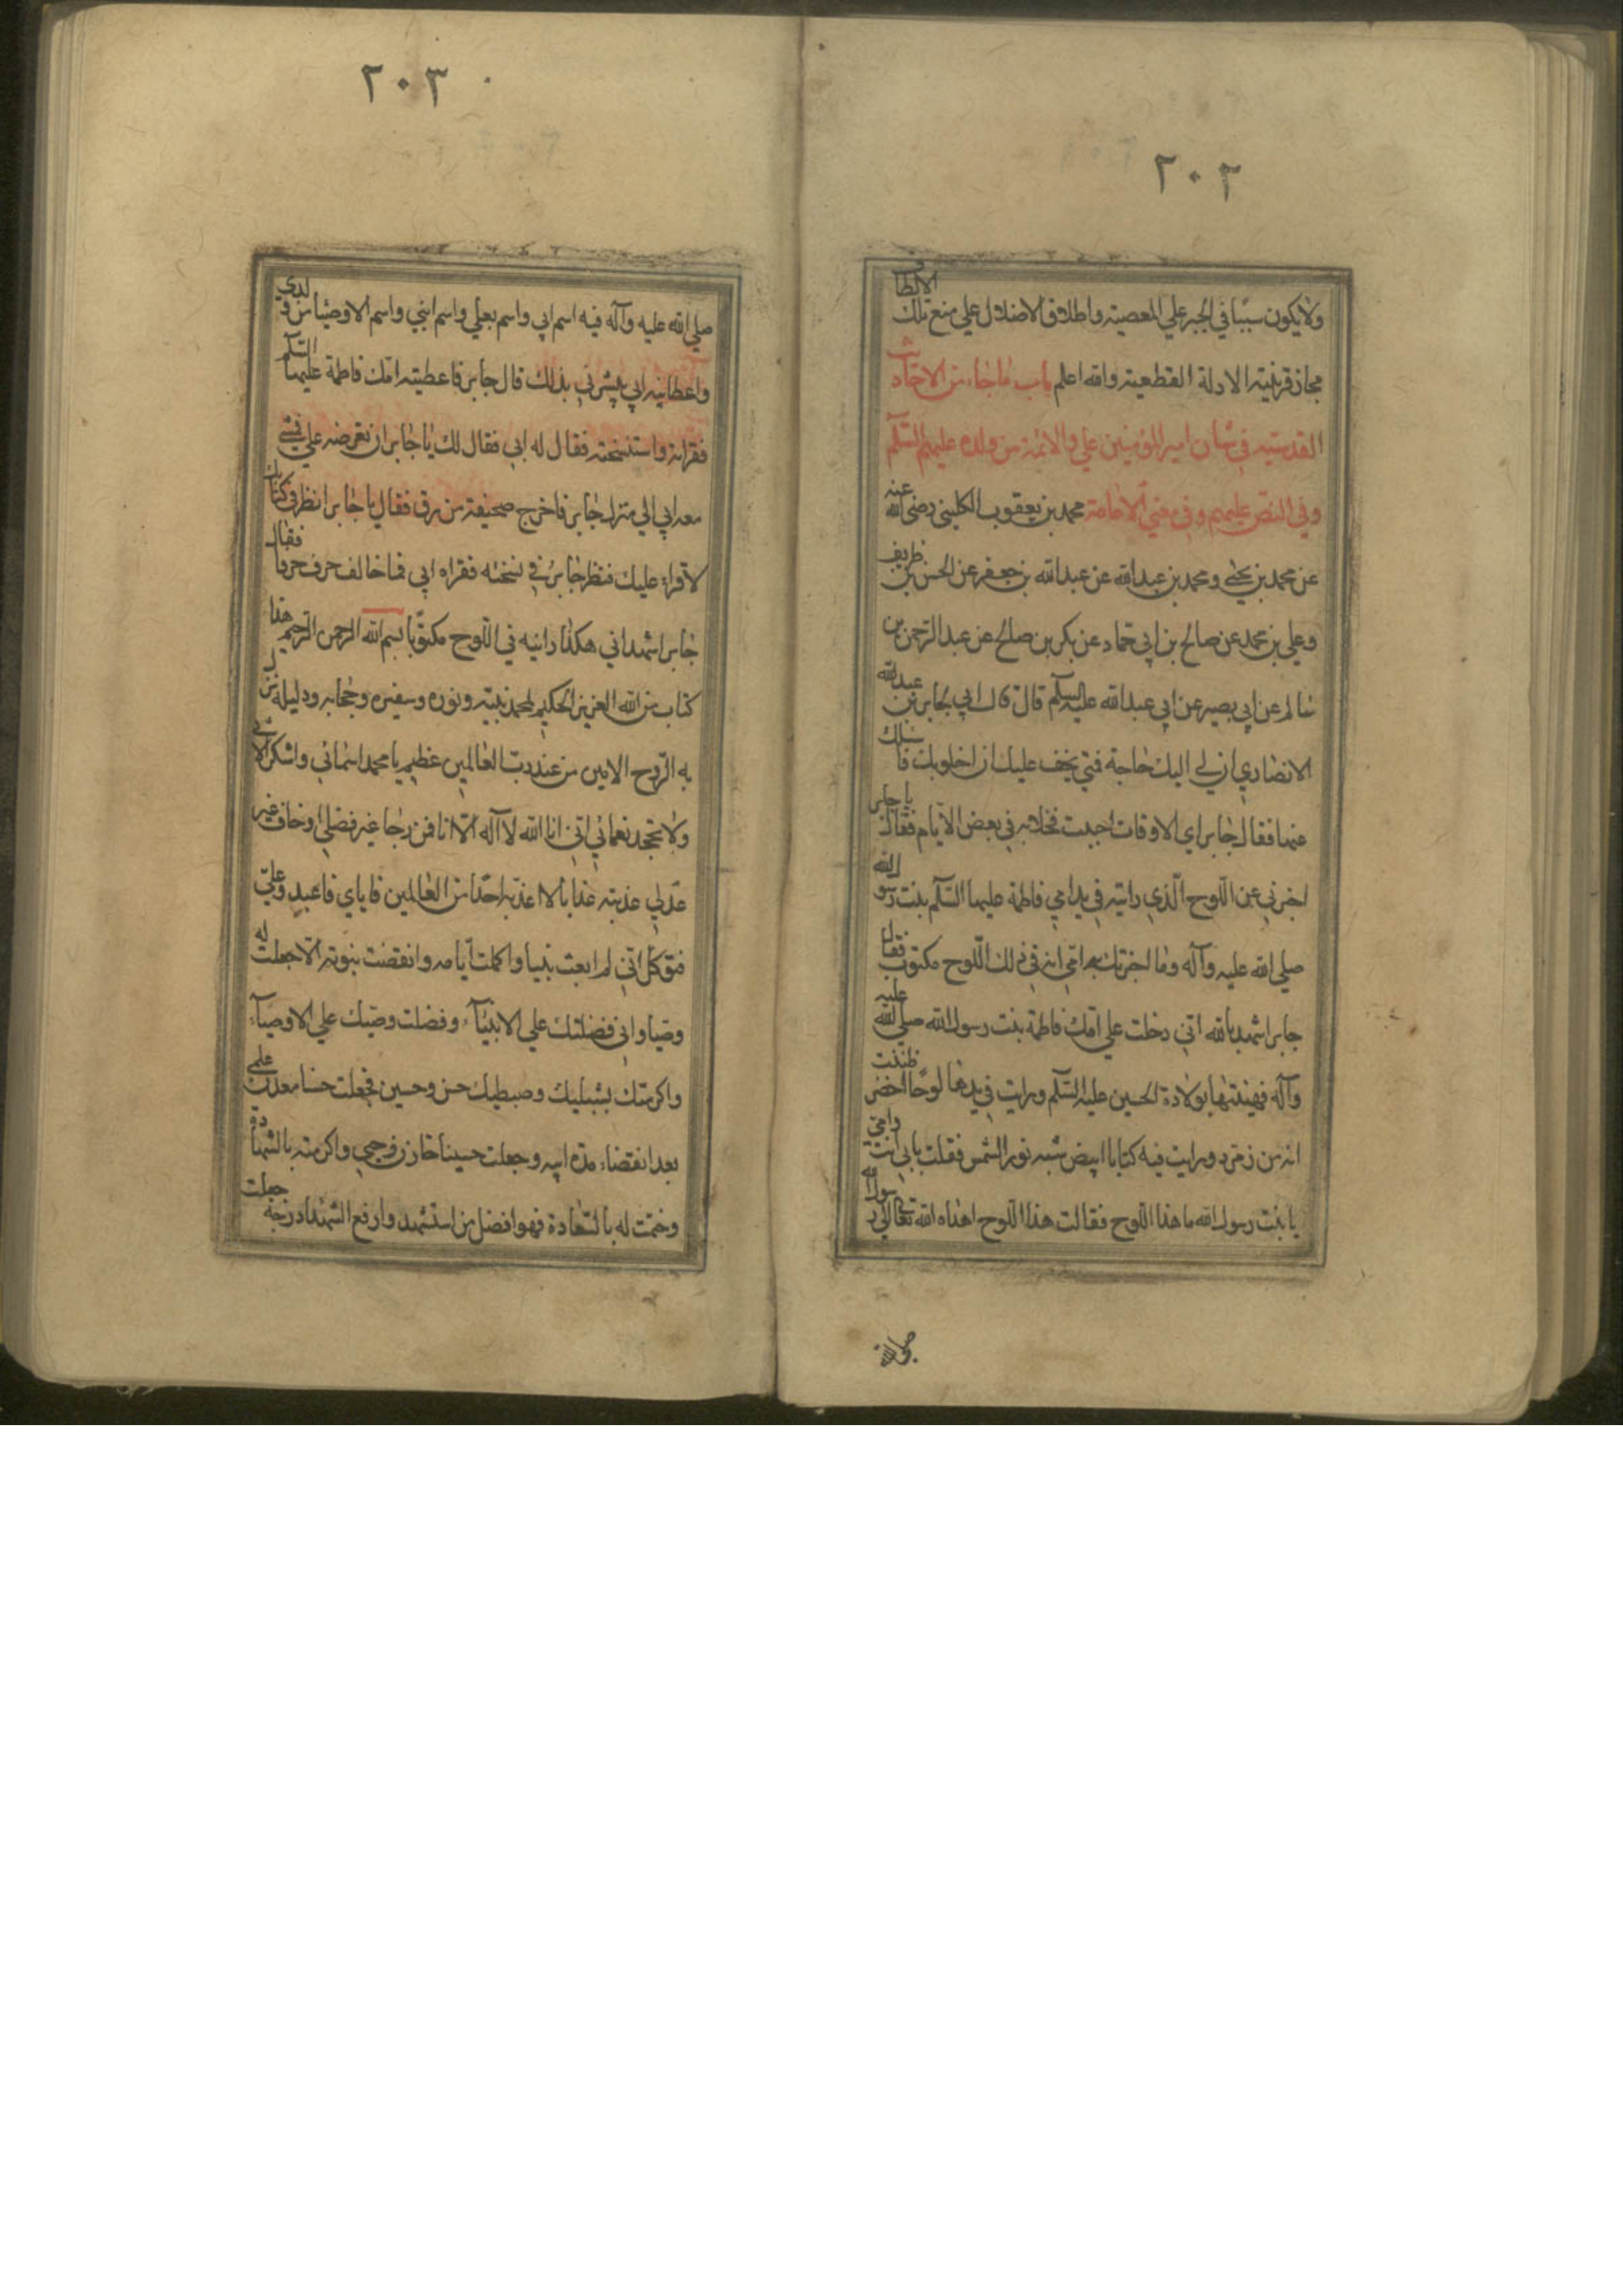 ٢٠٢
ولا يكون سببا في الجبر علي المعصيته واطلاق الاضلال علي منع تلك الالطاف
مجاز قرينيته الادلة القطعيته والله اعلم باب ما جاء من الاحاديث
القدسيته في شان امير المؤمنين علي والائمة من ولده عليهم السلم
وفي النص عليهم وفي معني الامامة محمد بن يعقوب الكليني رضي الله عنه
عن محمد بن يحيي ومحمد بن عبدالله عن عبدالله بن جعفر عن الحسن بن ظريف
وعلي بن محمد عن صالح بن ابي حماد عن بكر بن صالح عن عبد الرحمن بن
سالم عن ابي بصير عن ابي عبدالله عليه السلم قال قال ابي لجابر بن عبدالله
الانصاري ان لي اليك حاجة فمتي يخف عليك ان اخلو بك فاسئلك
عنها فقال جابر اي الاوقات احببت فخلا به في بعض الايام فقال يا جابر
اخبرني عن اللوح الذي رايته في يد امي فاطمة عليها السلم بنت رسول الله
صلي الله عليه وآله وما اخبرتك به امي انه في ذلك اللوح مكتوب فقال
جابر اشهد بالله اني دخلت علي امك فاطمة بنت رسول الله صلي الله عليه
وآله فهنيتها بولادة الحسين عليه السلم ورايت في يدها لوحا اخضر ظننت
انه من زمرد ورايت فيه كتابا ابيض شبه نور الشمس فقلت بابي انت وامي
يا بنت رسول الله ما هذا اللوح فقالت هذا اللوح اهداه الله تعالي الي رسول الله
صلي الله
٢٠٣
صلي الله عليه وآله فيه اسم ابي واسم بعلي واسم ابني واسم الاوصيا من ولدي
واعطانيه ابي ليبشرني بذلك قال جابر فاعطيته امك فاطمة عليها السلم
فقراته واستنسخته فقال له ابي فقال لك يا جابر ان تعرضه علي فمشي
معه ابي الي منزل جابر فاخرج صحيفة من رق فقال يا جابر انظر في كتابك
لاقراء عليك فنظر جابر في نسخته فقراه ابي فما خالف حرف حرفا فقال
جابر اشهد اني هكذا رايته في اللوح مكتوبا بسم الله الرحمن الرحيم هذا
كتاب من الله العزيز الحكيم لمحمد نبيه ونوره وسفيره وحجابه ودليله نزل
به الروح الامين من عند رب العالمين عظم يا محمد اسمائي واشكر الائي
ولا تجحد نعمائي اني انا الله لا اله الا انا فمن رجا غير فضلي او خاف غير
عدلي عذبته عذابا لا اعذبه احدا من العالمين فاياي فاعبد وعلي
فتوكل اني لم ابعث نبيا واكملت ايامه وانقضت نبوته الا جعلت له
وصيا واني فضلتك علي الانبيآء وفضلت وصيك علي الاوصيآء
واكرمتك بشبليك وصبطيك حسن وحسين فجعلت حسنا معدن علمي
بعد انقضاء مدة ابيه وجعلت حسينا خازن وحيي واكرمته بالشهادة
وختمت له بالسعادة فهو افضل من استشهد وارفع الشهدا درجة جعلت